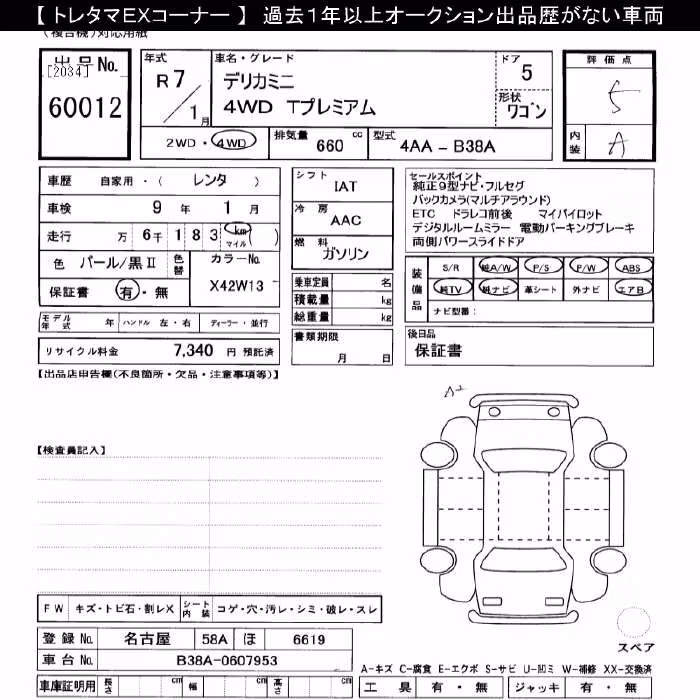 【 トレタマEXコーナー 】 過去1年以上オークション出品歴がない車両
(複合機)対応用紙
出品No.
[2034]
60012
年式
R 7/1月
車名・グレード
デリカミニ
4WD Tプレミアム
ドア
5
形状
ワゴン
評価点
5
内装
A
2WD・4WD
排気量 660 cc
型式 4AA - B38A
車歴 自家用・( レンタ )
車検 9年 1月
走行 万 6千 1 8 3 km マイル ( )
色 パール/黒Ⅱ
色替
カラーNo.
X42W13
保証書 有・無
モデル年式 年 ハンドル 左・右 ディーラー・並行
リサイクル料金 7,340 円 預託済
シフト
IAT
冷房
AAC
燃料
ガソリン
乗車定員 名
積載量 kg
総重量 kg
書類期限
月 日
セールスポイント
純正9型ナビ・フルセグ
バックカメラ(マルチアラウンド)
ETC ドラレコ前後 マイパイロット
デジタルルームミラー 電動パーキングブレーキ
両側パワースライドドア
装備品
S/R 純A/W P/S P/W ABS
純TV 純ナビ 革シート 外ナビ エアB
ナビ型番:
後日品
保証書
【出品店申告欄(不良箇所・欠品・注意事項等)】
A2
【検査員記入】
FW キズ・トビ石・割レX
シート内装 コゲ・穴・汚レ・シミ・破レ・スレ
登録No. 名古屋 58A ほ 6619
車台No. B38A-0607953
車庫証明用 長さ cm 幅 cm 高さ cm
スペア
A-キズ C-腐食 E-エクボ S-サビ U-凹ミ W-補修 XX-交換済
工具 有・無 ジャッキ 有・無